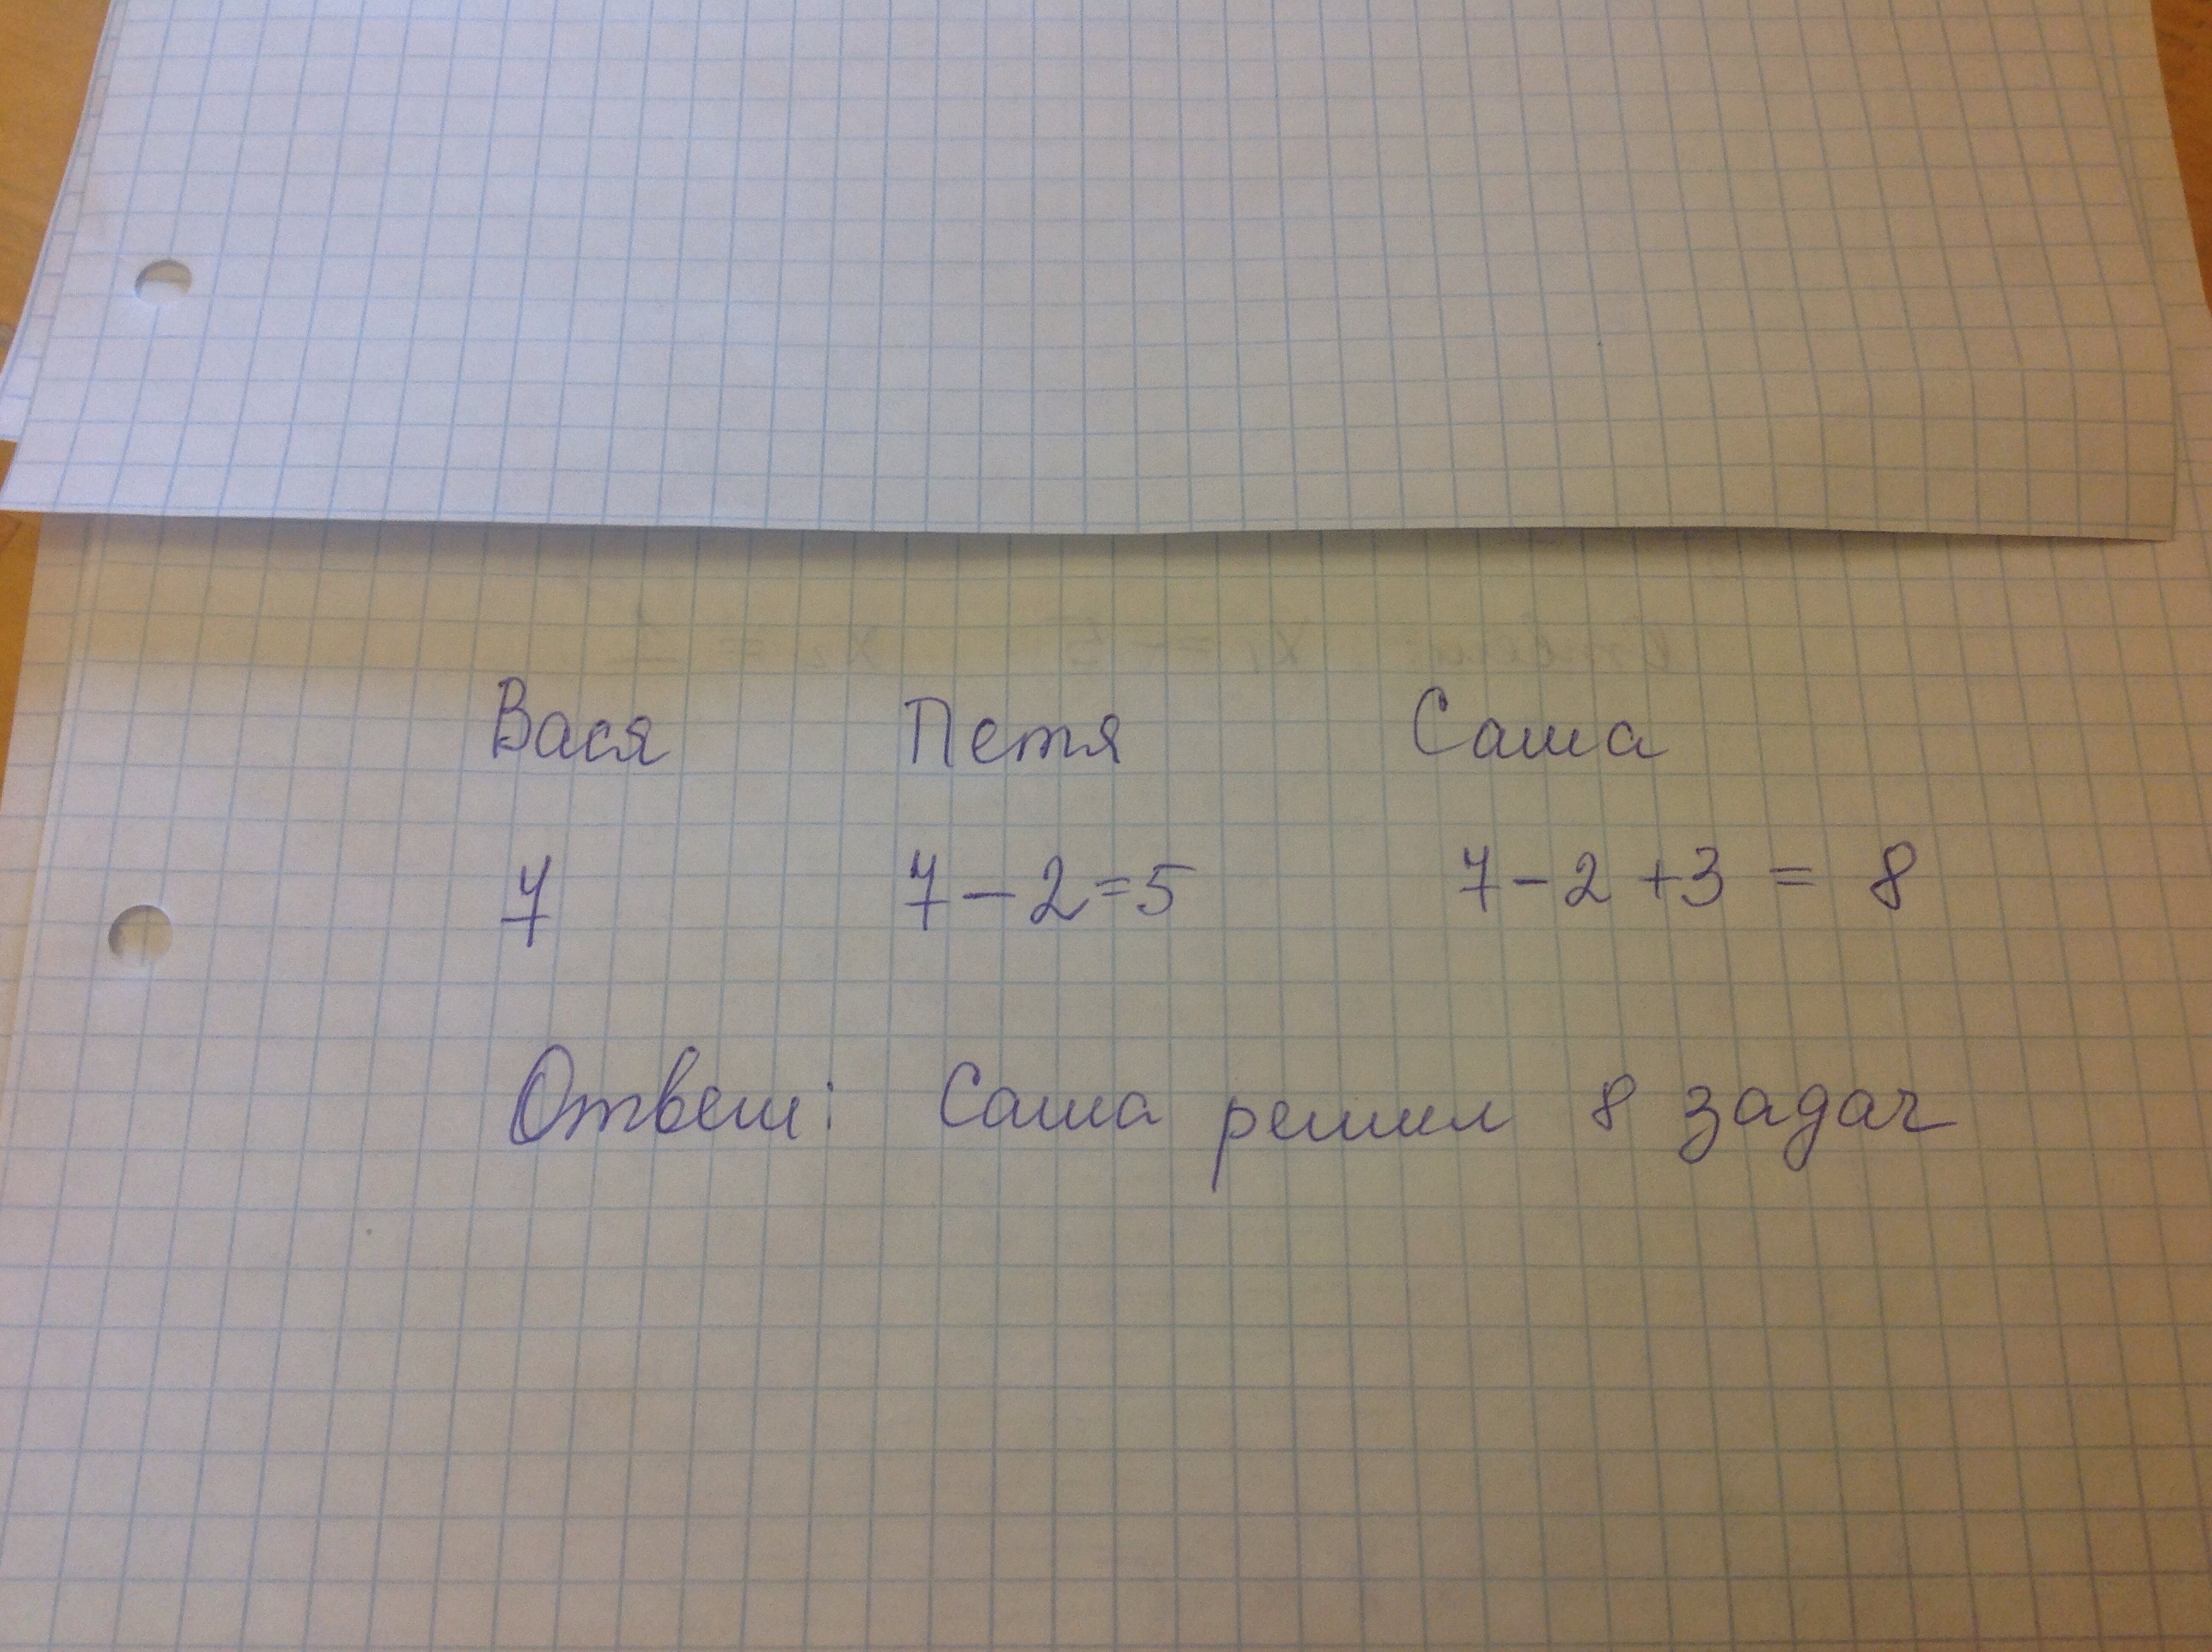 Вася Петя Саша
7 7-2=5 7-2+3 = 8
Ответ: Саша решил 8 задач